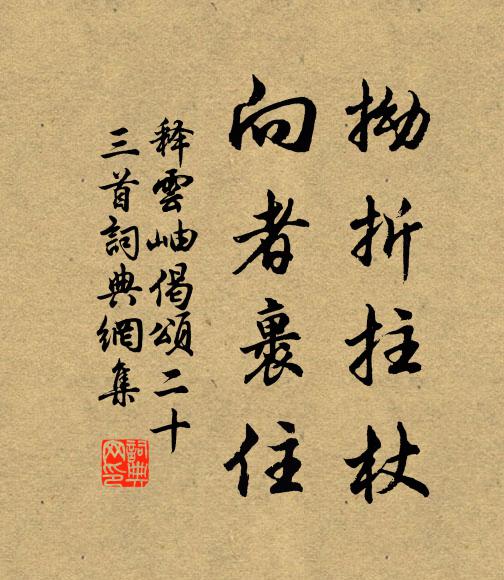 拗折拄杖
向者裹住
释雲岫偈頌二十
三首詞典網集
詞典网印